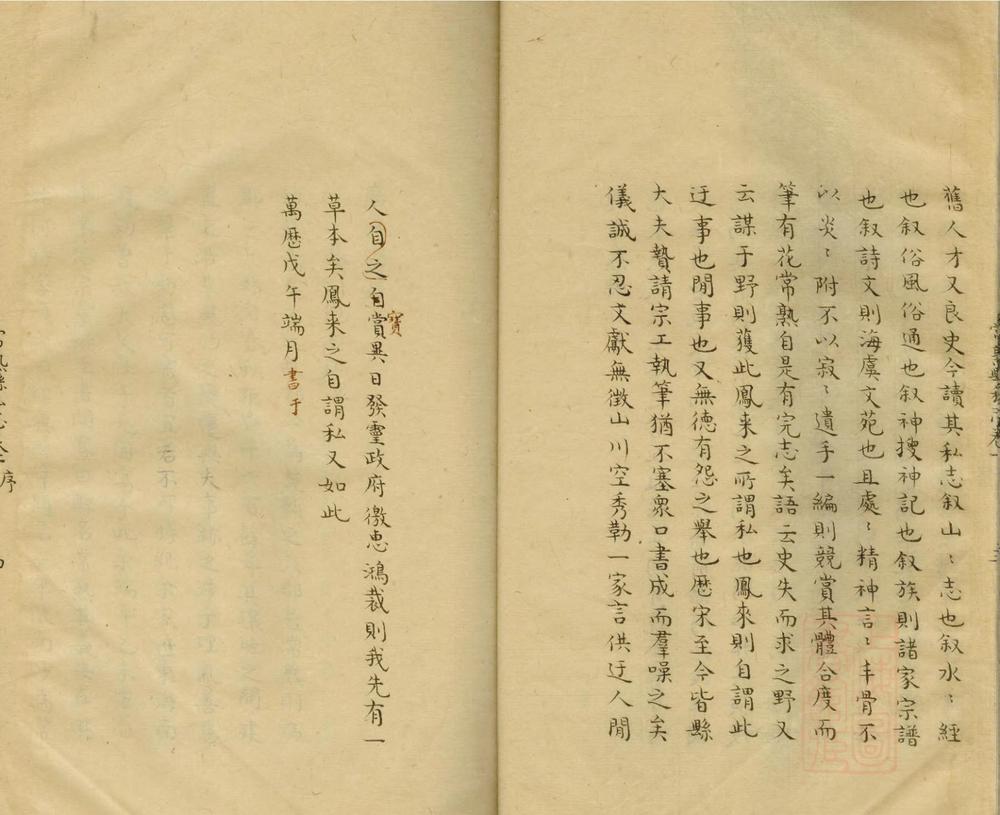 舊人才又良史今讀其私志叙山〻志也叙水〻經
也叙俗風俗通也叙神搜神記也叙族則諸家宗譜
也叙詩文則海虞文苑也且處〻精神言〻丰骨不
以炎〻附不以寂〻遺手一編則競賞其體合度而
筆有花常熟自是有完志矣語云史失而求之野又
云謀于野則獲此鳳来之所謂私也鳳來則自謂此
迂事也閒事也又無德有怨之舉也歷宋至今皆縣
大夫贄請宗工執筆猶不塞衆口書成而羣噪之矣
儀誠不忍文獻無徵山川空秀勒一家言供迂人閒
人自之自賞異日發霊政府徼恵鴻裁則我先有一
寳
草本矣鳳来之自謂私又如此
萬歷戊午端月書于
序